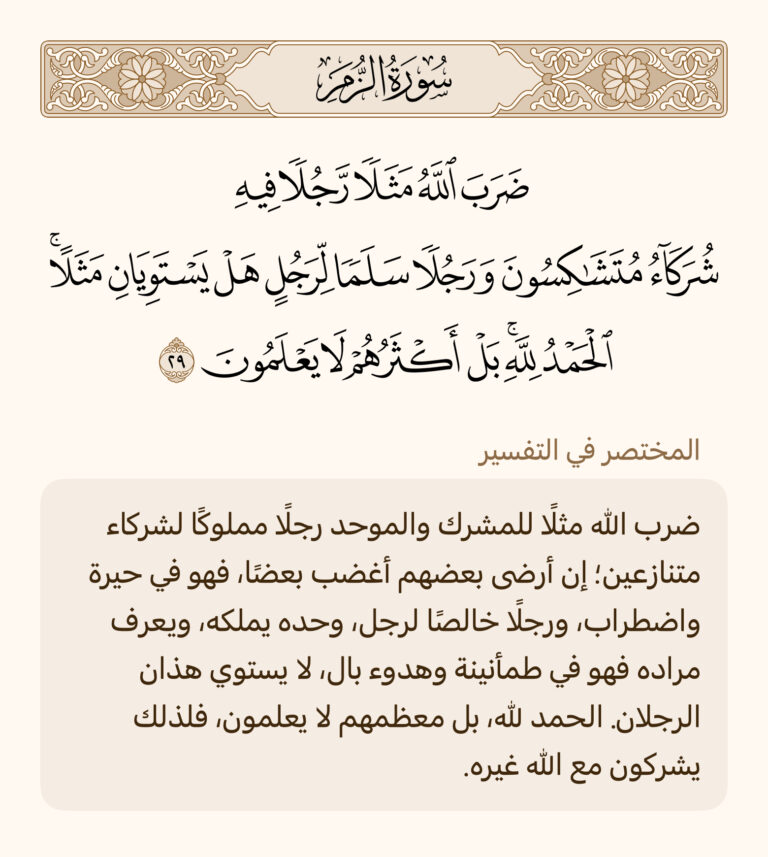 سُورَةُ الزُّمَرِ
ضَرَبَ ٱللَّهُ مَثَلًا رَّجُلًا فِيهِ
شُرَكَآءُ مُتَشَٰكِسُونَ وَرَجُلًا سَلَمًا لِّرَجُلٍ هَلْ يَسْتَوِيَانِ مَثَلًاۚ
ٱلْحَمْدُ لِلَّهِۚ بَلْ أَكْثَرُهُمْ لَا يَعْلَمُونَ ٢٩
المختصر في التفسير
ضرب الله مثلًا للمشرك والموحد رجلًا مملوكًا لشركاء
متنازعين؛ إن أرضى بعضهم أغضب بعضًا، فهو في حيرة
واضطراب، ورجلًا خالصًا لرجل، وحده يملكه، ويعرف
مراده فهو في طمأنينة وهدوء بال، لا يستوي هذان
الرجلان. الحمد لله، بل معظمهم لا يعلمون، فلذلك
يشركون مع الله غيره.